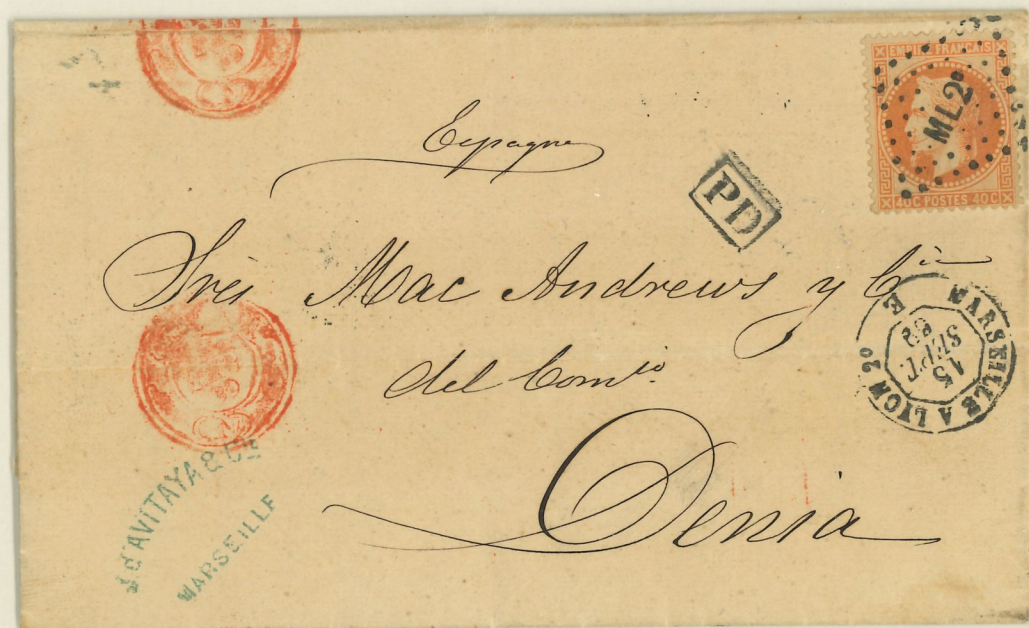 EMPIRE FRANCAIS
ML2°
40C POSTES 40C
Espagne
PD
Srés Mac Andrews y Cía
MARSEILLE A LYON 2°
E
15
SEPT.
del Comio.
Denia
J. D'AVITAYA & CIE
MARSEILLE